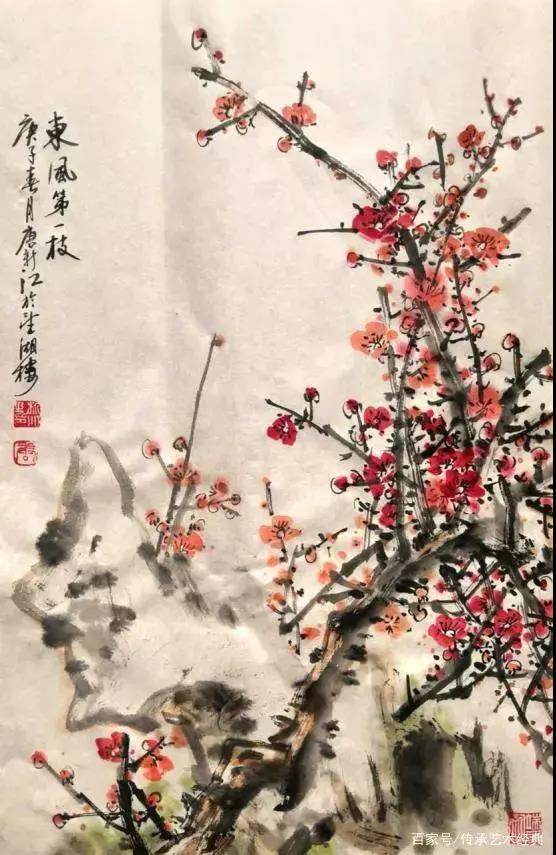 東風第一枝
庚子春月唐新江於望湖樓
百家号/传承艺术经典